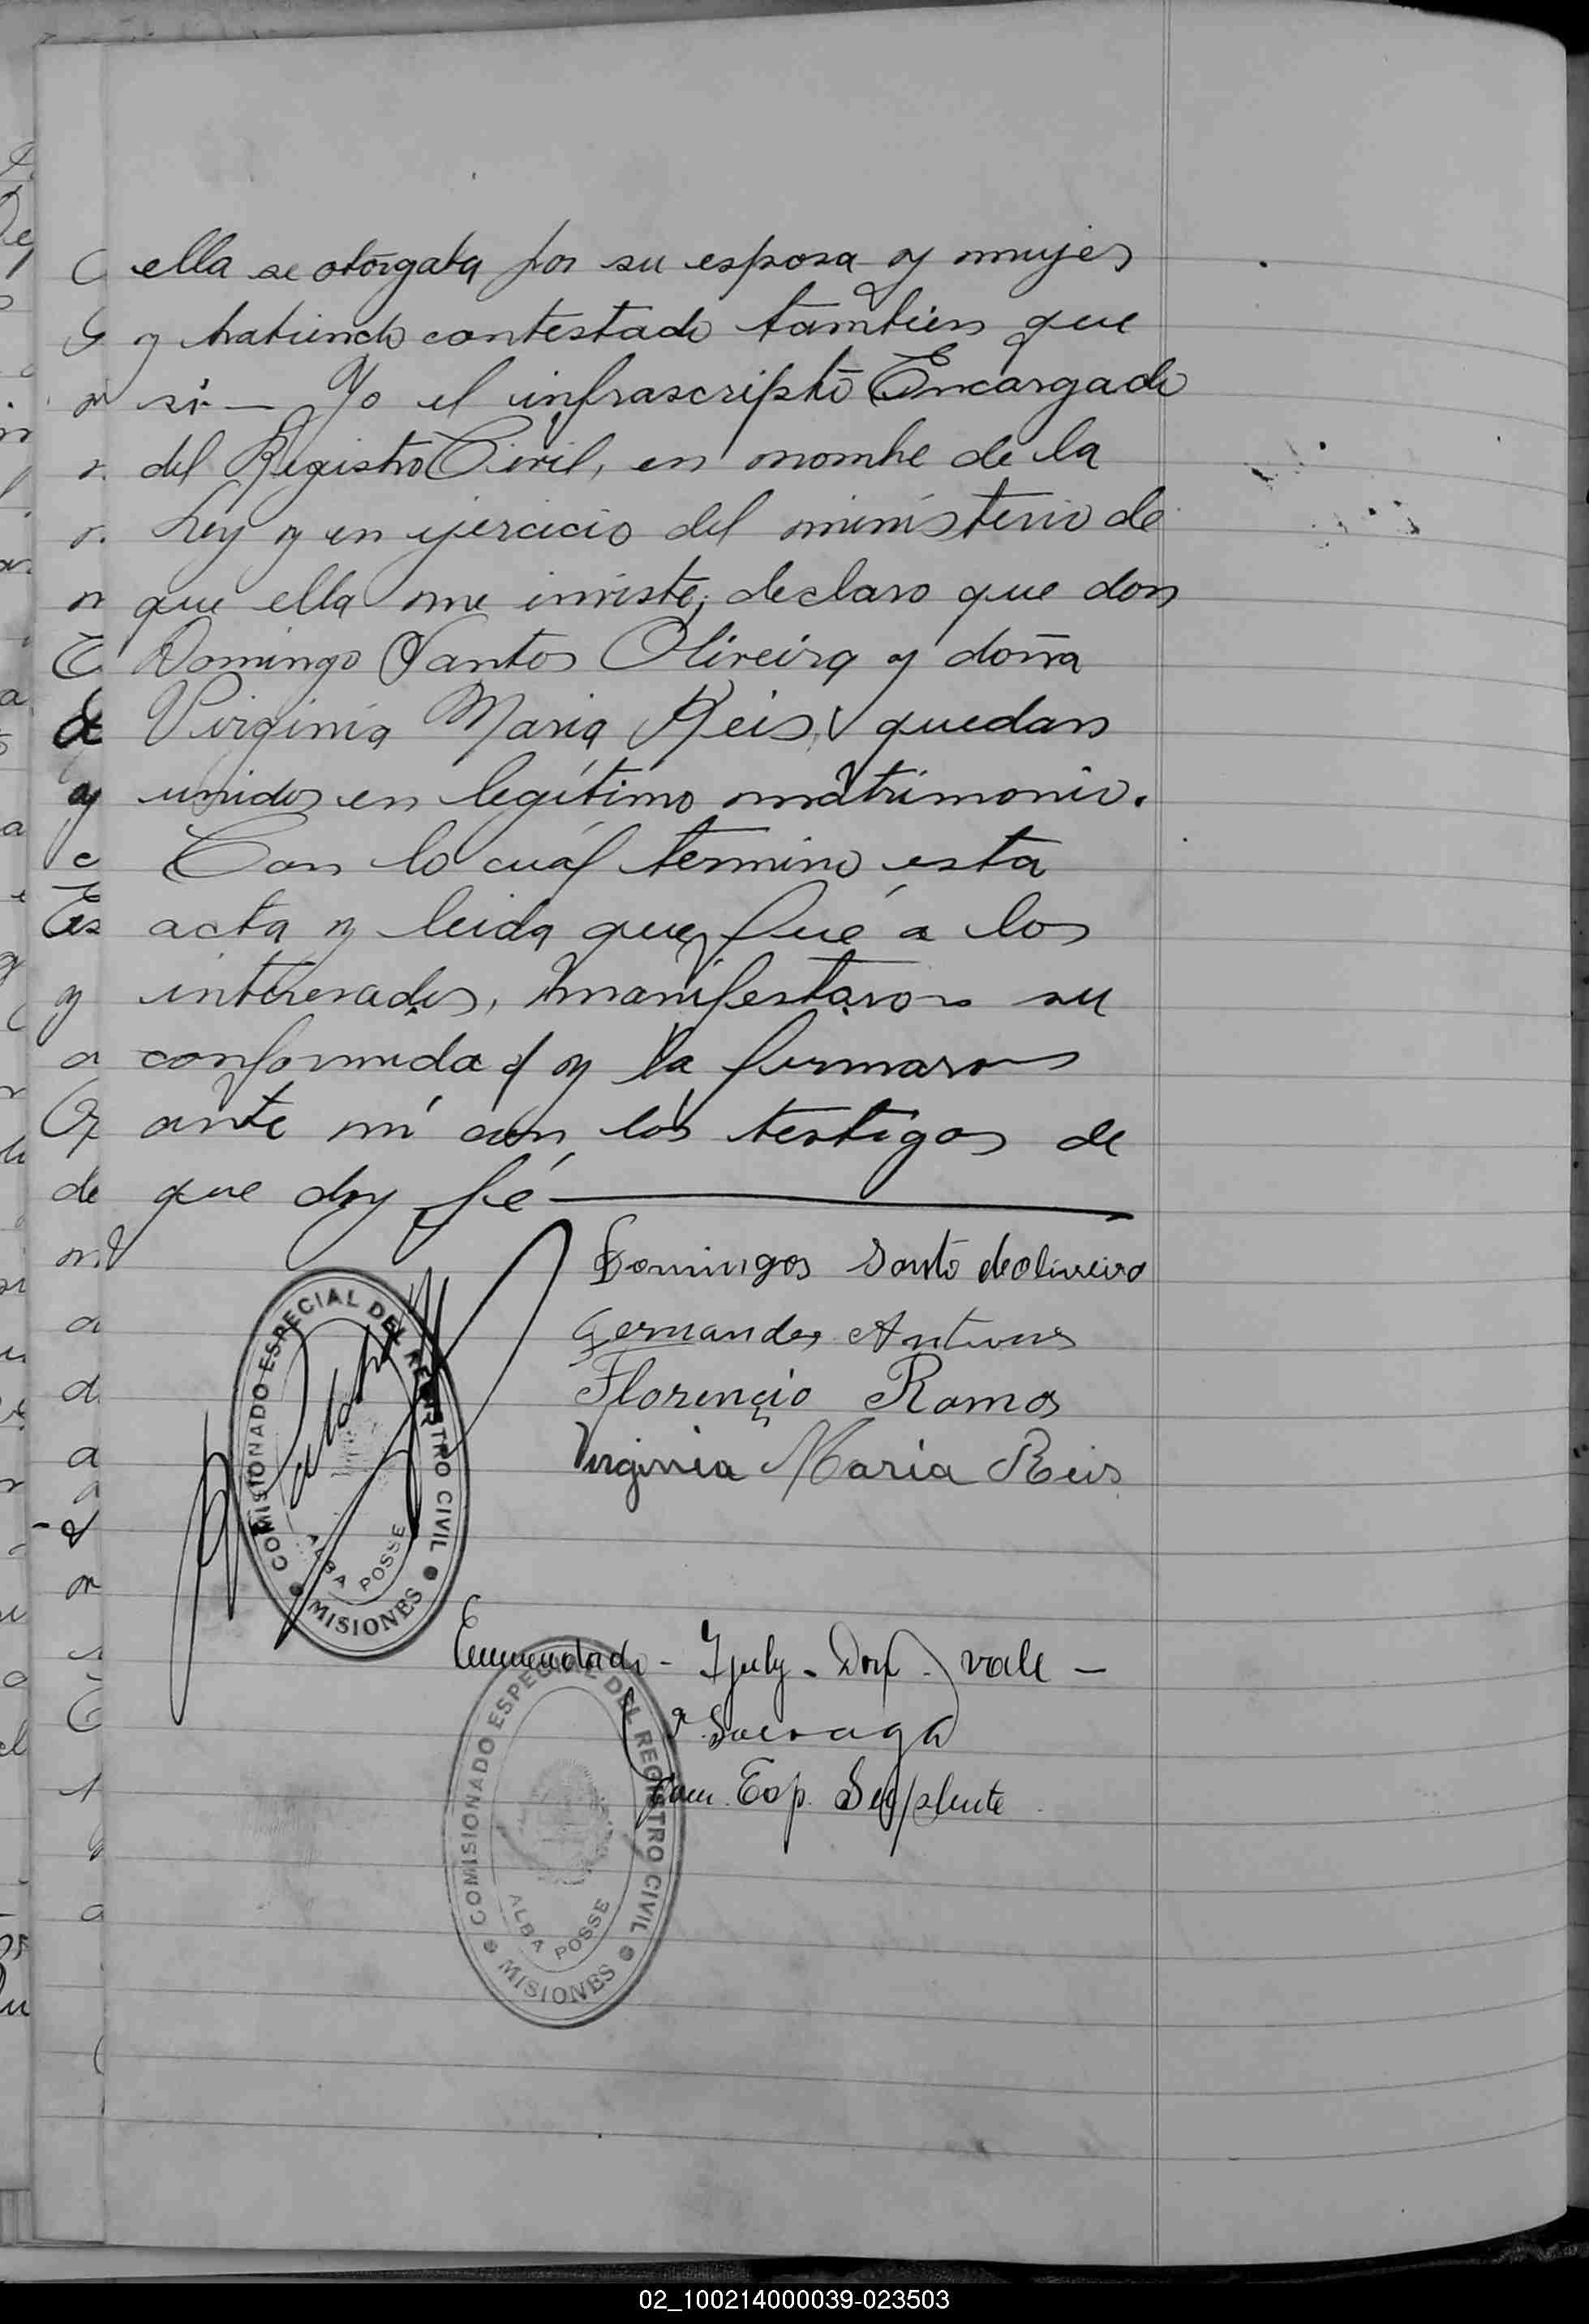 ella se otorgaba por su esposa y mujer
y habiendo contestado tambien que
si — Yo el infrascripto Encargado
del Registro Civil, en nombre de la
Ley y en ejercicio del ministerio de
que ella me inviste, declaro que don
Domingo Santos Oliveira y doña
Virginia Maria Reis, quedan
unidos en legítimo matrimonio.
Con lo cuál termino esta
acta y leida que fué a los
interesados, manifestaron su
conformidad y la firmaron
ante mí con los testigos de
que doy fé
Domingos Santo de oliveira
Fernandes Antunes
Florencio Ramos
Virginia Maria Reis
COMISIONADO ESPECIAL DEL REGISTRO CIVIL
ALBA POSSE
MISIONES
Enmendado - vale -
Com. Esp. Suplente
COMISIONADO ESPECIAL DEL REGISTRO CIVIL
ALBA POSSE
MISIONES
02_100214000039-023503